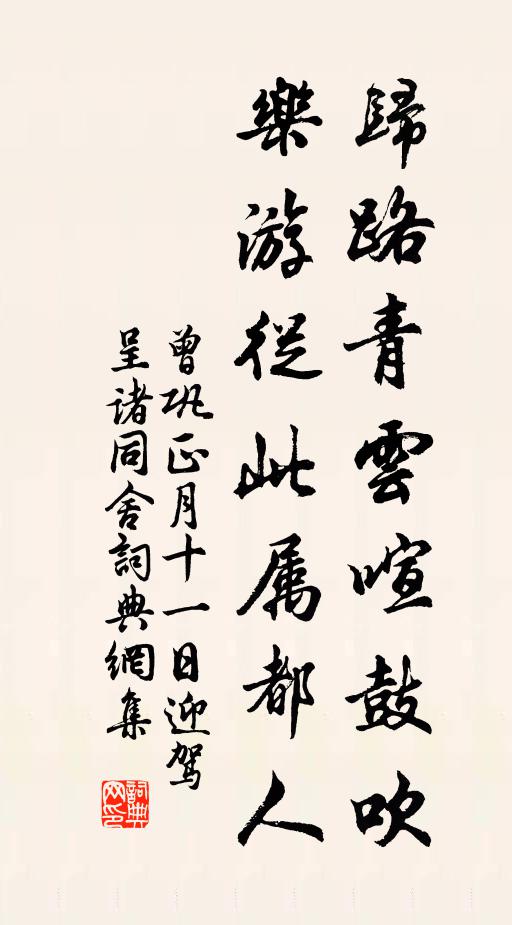 歸路青雲喧鼓吹
樂游從此属都人
曾巩正月十一日迎驾
呈诸同舍詞典網集
詞典网印